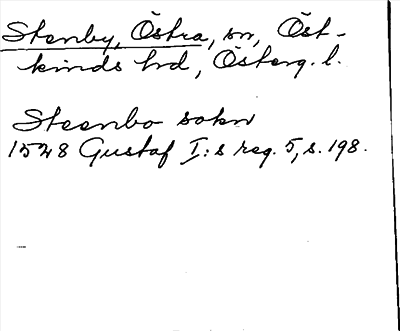 Stenby, Östra, sn, Öst-
kinds hd, Österg. l.
Steenbo sokn
1528 Gustaf I:s reg. 5, s. 198.